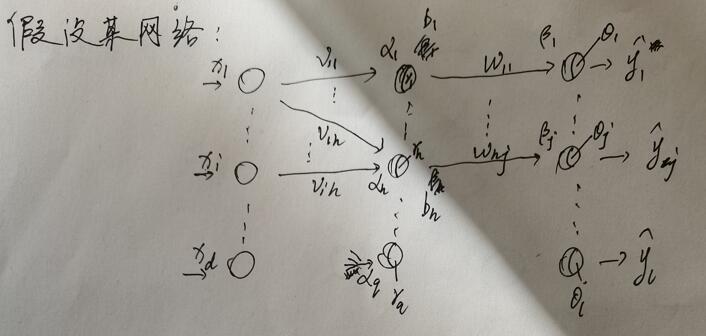 假设某网络:
x₁ v₁₁ α₁ b₁ w₁₁ β₁ θ₁ ŷ₁
v₁ₕ
xᵢ vᵢₕ αₕ γₕ bₕ wₕⱼ βⱼ θⱼ ŷⱼ
x_d α_q γ_q θ_l ŷ_l